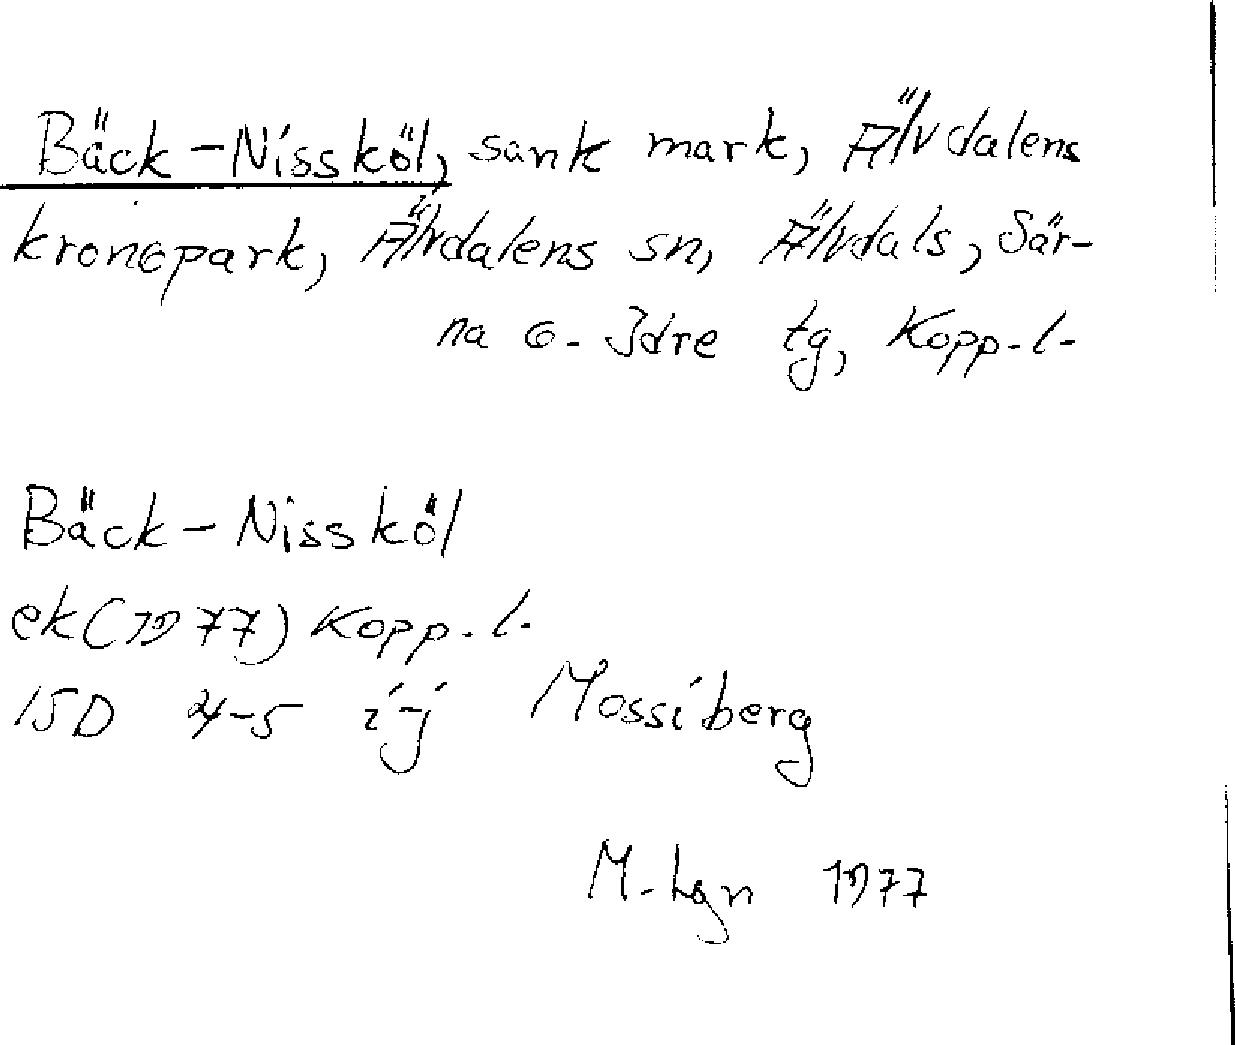 Bäck-Nissköl, sank mark, Älvdalens
kronopark, Älvdalens sn, Älvdals, Sär-
na o. Idre tg, Kopp.l.
Bäck-Nissköl
ek(1977) Kopp.l.
15D 4-5 i-j Mossiberg
M.Lgn 1977